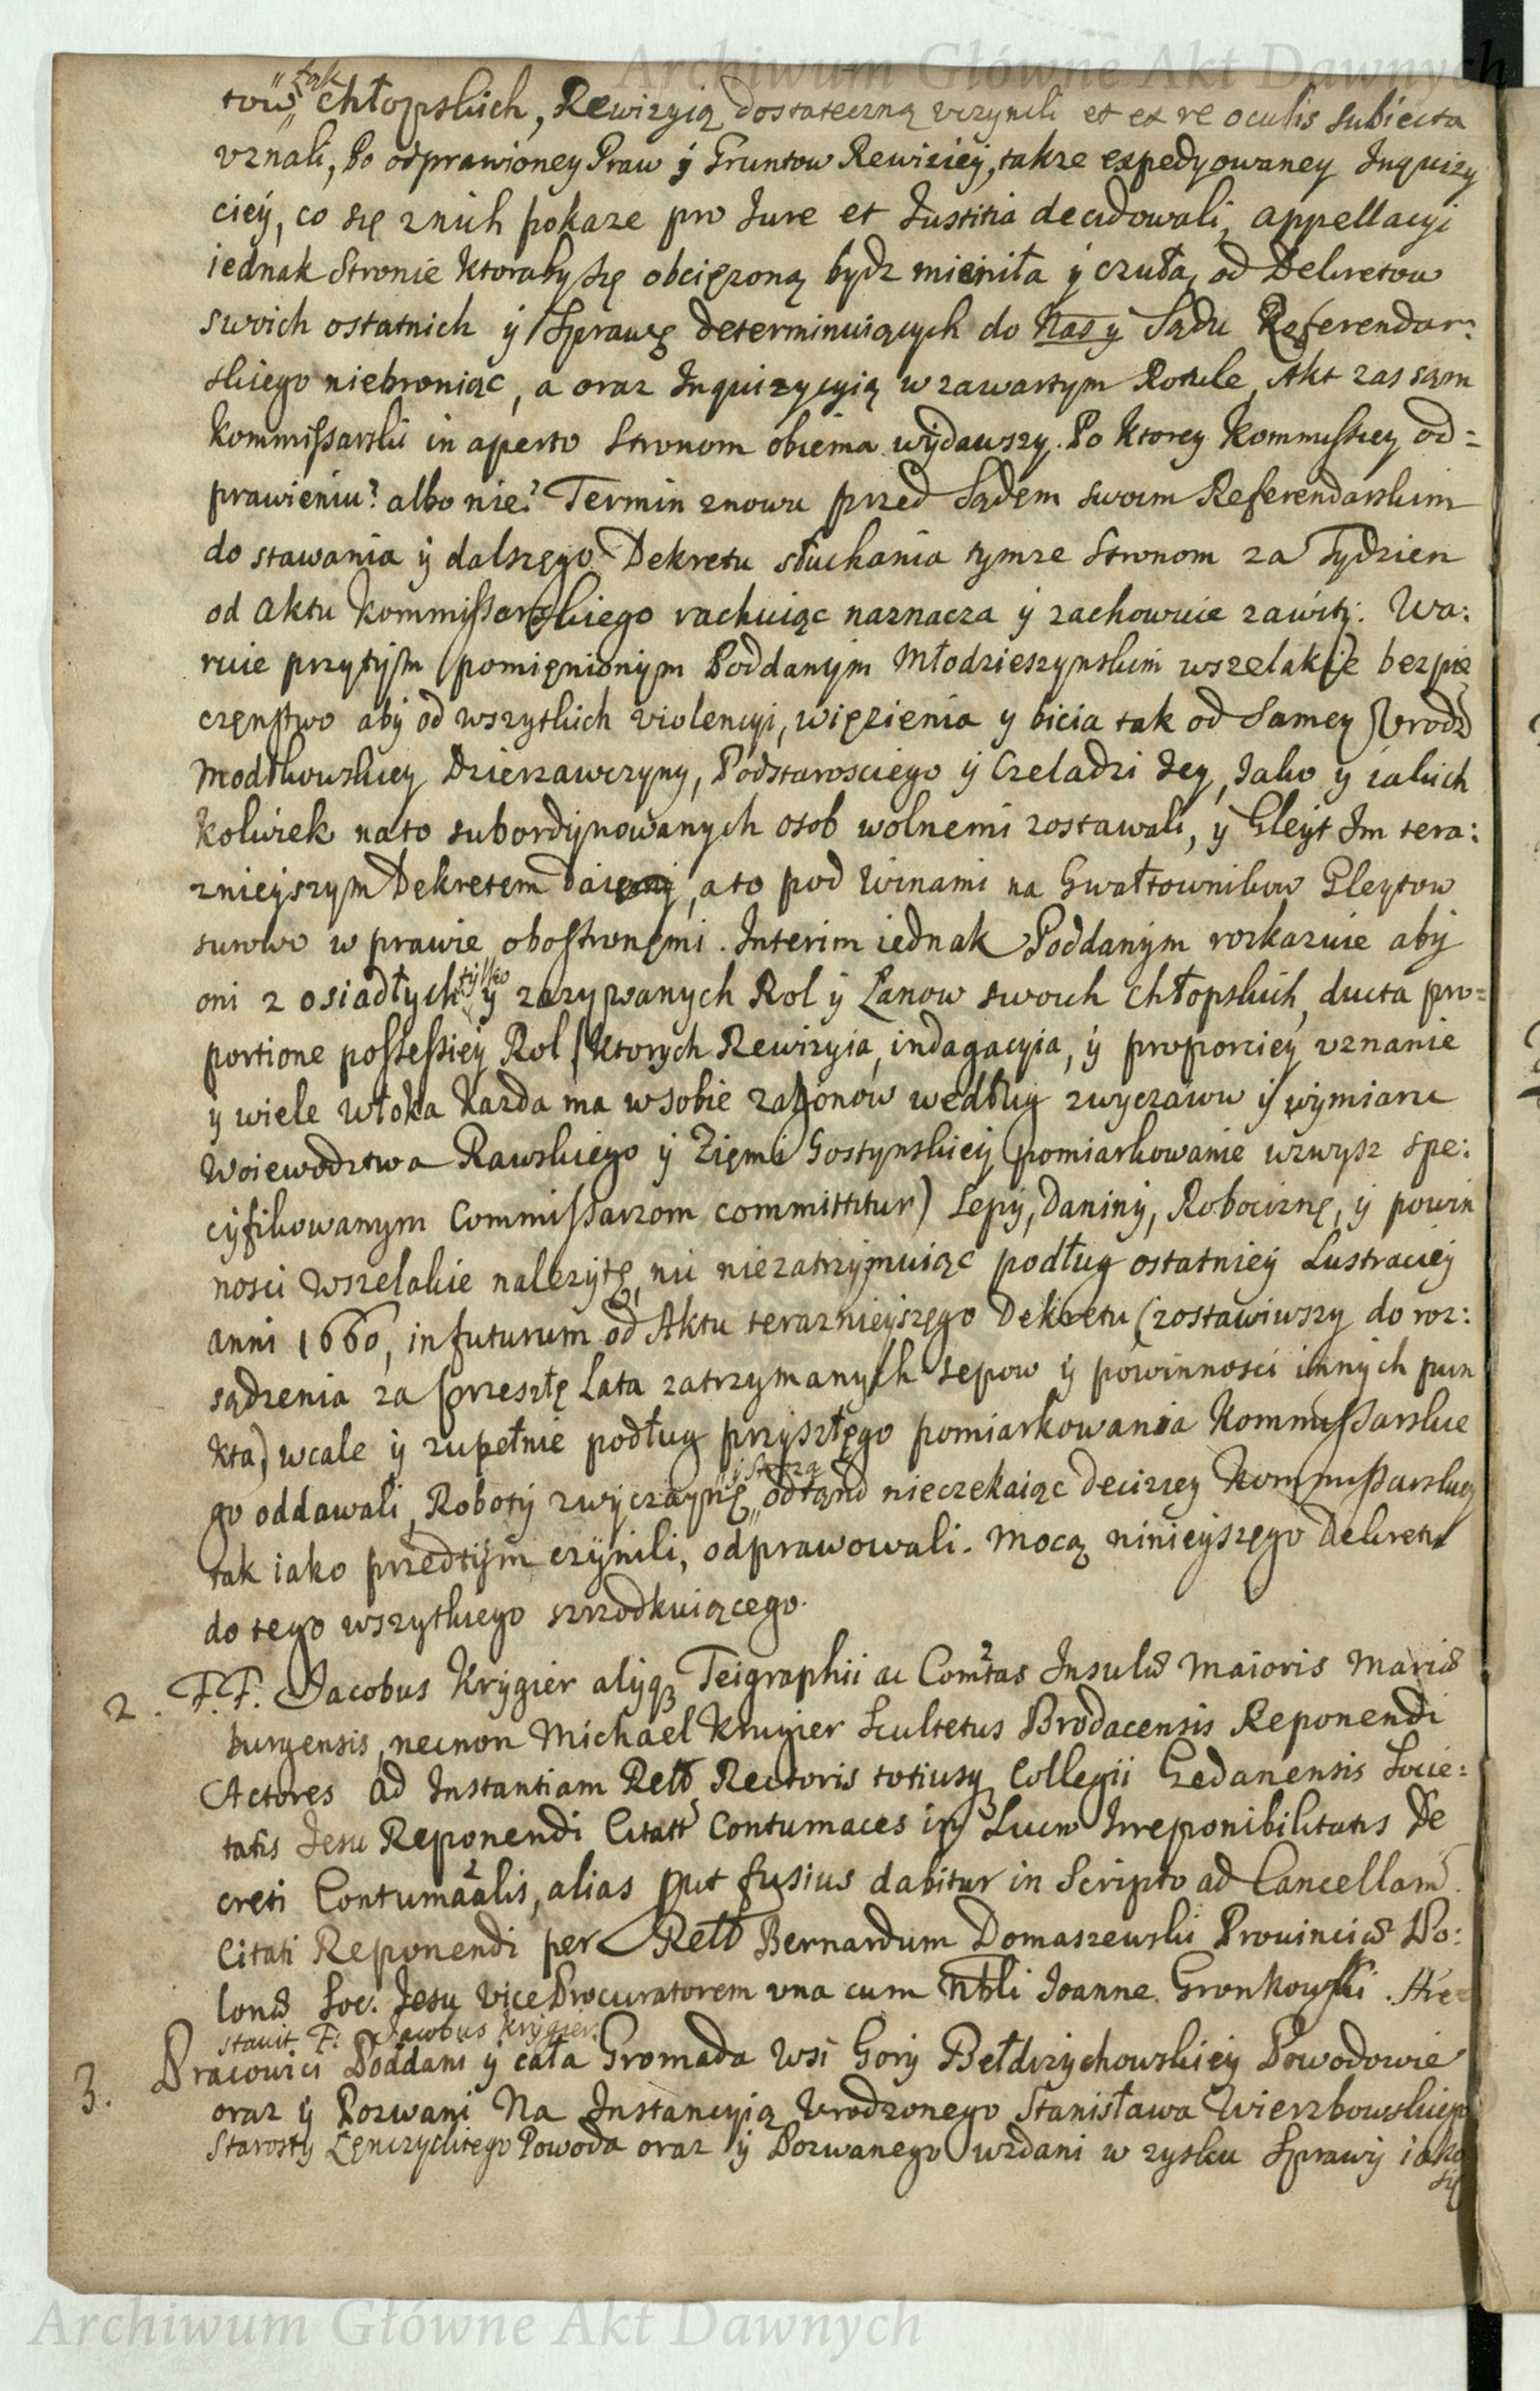 Archiwum Główne Akt Dawnych
tow „tak chłopskich, Rewizyią dostateczną vczynili et ex re oculis subiecta
vznali, Po odprawioney Praw ÿ Gruntow Rewiziey, takze expedyowaney Inquizy
cieÿ, co się znich pokaze pro Jure et Justitia decidowali, appellacyi
iednak Stronie ktoraby się obcięzoną bydz mieniła ÿ czuła, od Dekretow
swoich ostatnich ÿ Sprawę determinuiących do Nas ÿ Sądu Referendar:
skiego niebroniąc, a oraz Inquizycyią w zawartym Rotule, Akt zas sąm
Kommissarski in aperto Stronom obiema wÿdawszy. Po ktorey Kommissiey od=
prawieniu? albo nie? Termin znowu przed Sądem swoim Referendarskim
do stawania ÿ dalszęgo Dekretu słuchania tymze Stronom za Tydzien
od Aktu Kommissarskiego rachuiąc naznacza ÿ zachowuie zawitÿ. Wa:
ruie przytÿm pomięnionÿm Poddanÿm Młodzieszynskim wszelakie bezpie
częnstwo abÿ od wszytkich violencyi, więzienia y bicia tak od Samey Vrodz
Modłkowskiey Dzierzawczyny, Podstarosciego ÿ Czeladzi Iey, Iako ÿ iakich
kolwiek nato subordÿnowanych osob wolnemi zostawali, ÿ Gleÿt Im tera:
znieÿszym Dekretem daie, a to pod Winami na Gwałtownikow Gleytow
surowo w prawie obostronęmi. Interim iednak Poddanÿm rozkazuie abÿ
oni z osiadłych tylko ÿ zazywanych Rol ÿ Łanow swoich chłopskich, ducta pro=
portione possessiey Rol (ktorych Rewizyia, indagacyia, ÿ proporciey vznanie
ÿ wiele włoka kazda ma wsobie zagonow według zwyczaiu ÿ wÿmiaru
Woiewodztwa Rawskiego ÿ Zięmi Gostynskieÿ pomiarkowanie wzwysz spe:
cÿfikowanym Commissarzom committitur) Sepÿ, Daninÿ, Robociznę, ÿ powin
nosci wszelakie nalezÿtę, nic niezatrzÿmuiąc podług ostatnieÿ Lustracieÿ
anni 1660, in futurum od Aktu teraznieÿszęgo Dekretu (zostawiwszy do roz:
sądzenia za przeszłę Lata zatrzymanych sepow ÿ powinnosci innÿch pun
kta) wcale ÿ zupełnie podług przÿszłęgo pomiarkowania Kommissarskie
go oddawali, Robotÿ zwÿczaÿnę „ÿ strozą” odtąnd nieczekaiąc deciziey Kommissarskiey
tak iako przedtÿm czÿnili, odprawowali. Mocą ninieÿszęgo Dekretu
do tego wszytkiego szrzodkuiącego.
2. F.F. Iacobus Krÿgier alÿq3 Teigraphii ac Com̃tas Insulæ Maioris Mariæ
burgensis, necnon Michael Krugier Scultetus Brodacensis Reponendi
Actores Ad Instantiam Relõ Rectoris totiusq3 Collegii Gedanensis Socie:
tatis Iesu Reponendi Citatt Contumaces in Lucro Irreponibilitatis De
creti Contumãalis, alias put fusius dabitur in Scripto ad Cancellam.
Citati Reponendi per Relõ Bernardum Domaszewski Prouinciæ Po:
lonæ Soc. Iesu Vice Procuratorem vna cum Nbli Ioanne Gronkowski. Hic
stauit F: Iacobus Krÿgier.
3. Pracowici Poddani ÿ cała Gromada Wsi Gorÿ Bełdrzychowskiey Powodowie
oraz ÿ Pozwani Na Instancyią Vrodzonego Stanisława Wierzbowskiego
Starostÿ Łęnczyckiego Powoda oraz ÿ Pozwanego wzdani w zysku Sprawÿ iako
się
Archiwum Główne Akt Dawnych